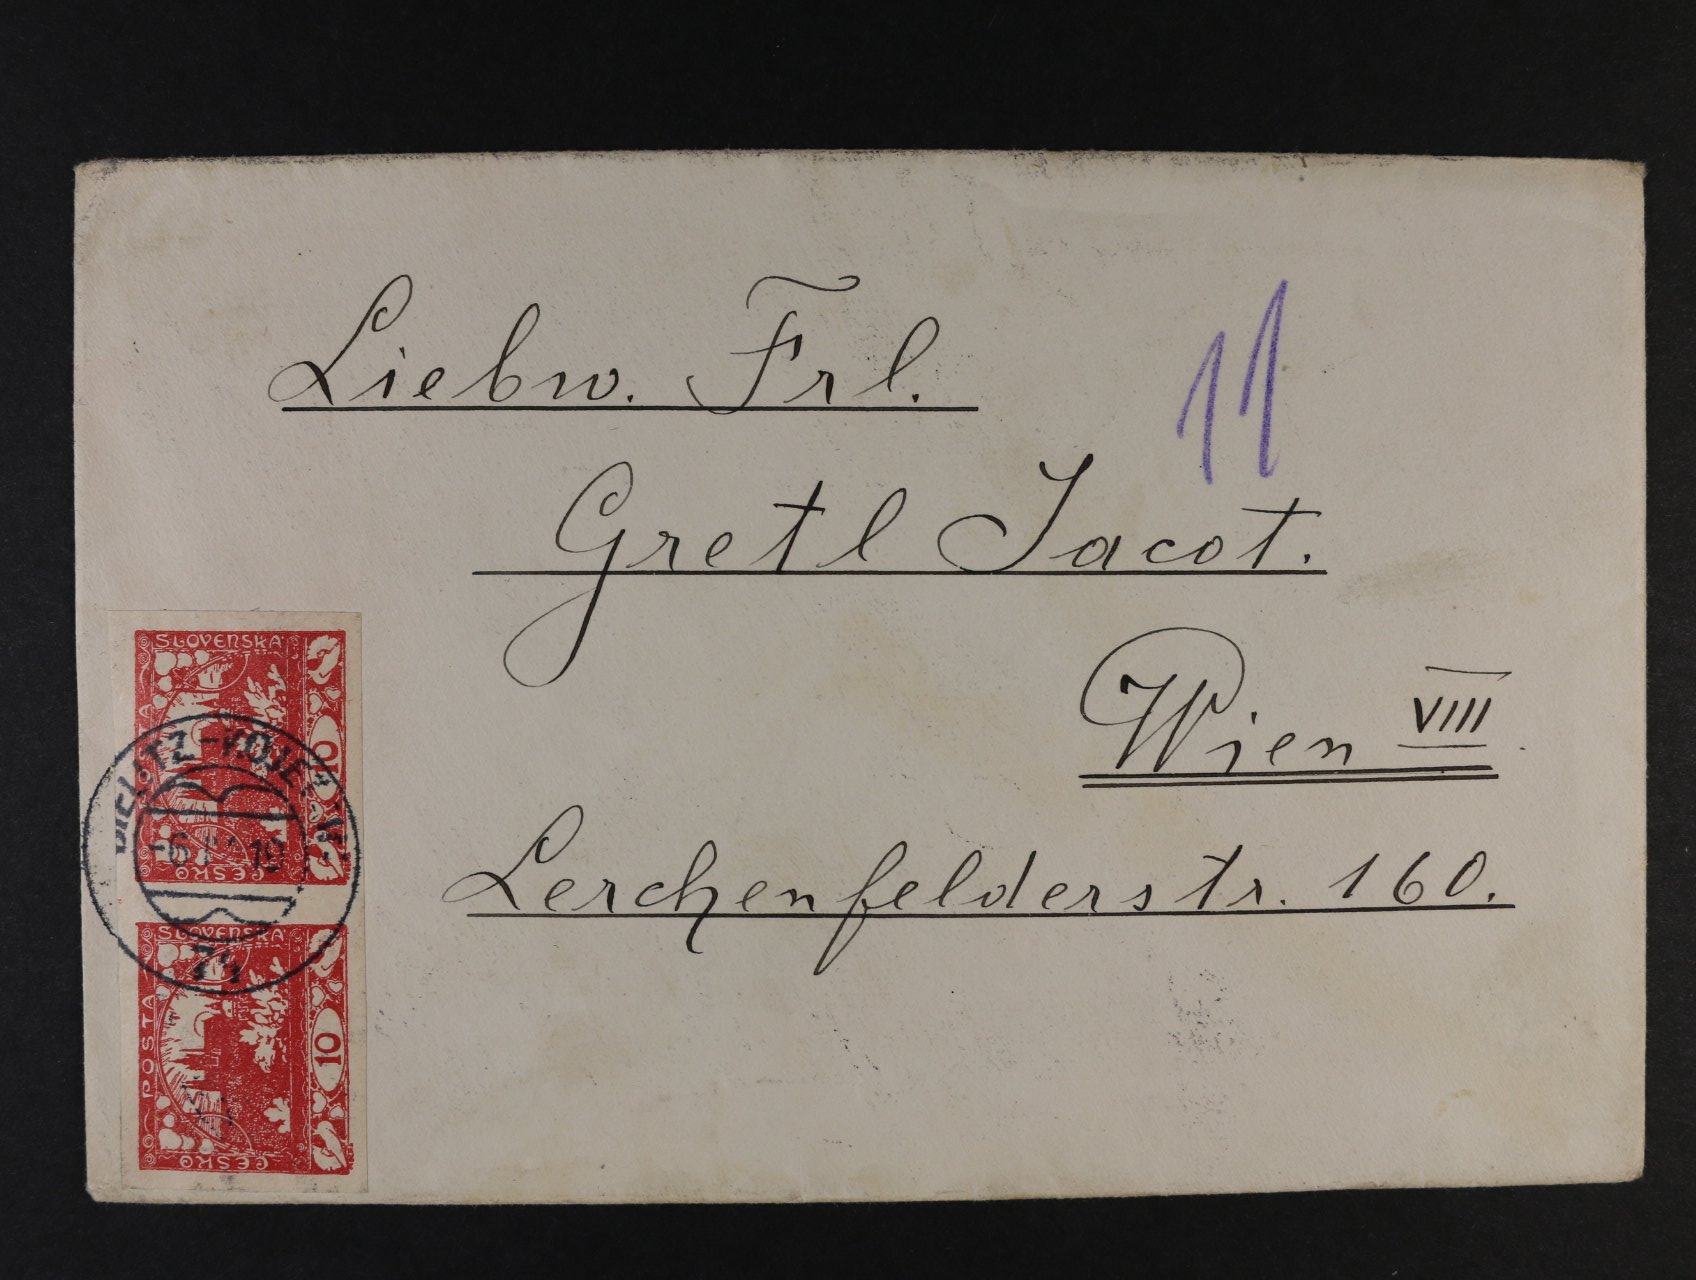 Liebw. Frl.
11
Gretl Jacot.
Wien VIII
Lerchenfelderstr. 160.
SLOVENSKA
POSTA
ČESKO
10
BIELITZ-
6 19
7h
SLOVENSKA
POSTA
ČESKO
10